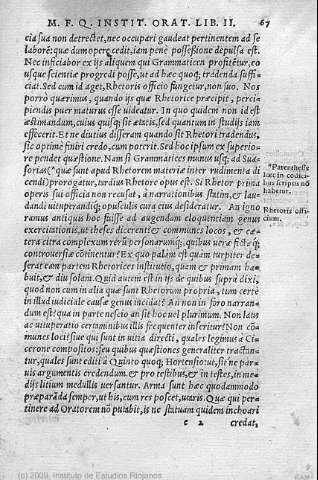 M. F. Q. INSTIT. ORAT. LIB. II. 67
cia sua non detrectet, nec occupari gaudeat pertinentem ad se
laborē: quæ dum opere cedit, iam penè possessione depulsa est.
Nec inficiabor ex ijs aliquem qui Grammaticen profitētur, eo
usq; scientiæ progredi posse, ut ad hæc quoq; tradenda suffi-
ciat. Sed cum id aget, Rhetoris officio fungetur, non suo. Nos
porrò quærimus, quando ijs quæ Rhetorice præcipit, perci-
piendis puer maturus esse uideatur. In quo quidem non id est
æstimandum, cuius quisq; sit ætatis, sed quantum in studijs iam
effecerit. Et ne diutius disseram quando sit Rhetori tradendus,
sic optime finiri credo, cum poterit. Sed hoc ipsum ex superio-
re pendet quæstione. Nam si Grammatices munus usq; ad Sua-
sorias (*quæ sunt apud Rhetorem materiæ inter rudimenta di
cendi) prorogatur, tardius Rhetore opus est. Si Rhetor prima
operis sui officia non recusat, à narrationibus statim, & lau-
dandi uituperandiq; opusculis cura eius desideratur. An igno
ramus antiquis hoc fuisse ad augendam eloquentiam genus
exercitationis, ut theses dicerent, & communes locos, & cæ-
tera citra complexum rerū personarumq;, quibus ueræ fictæ q;
controuersiæ cōtinentur? Ex quo palam est quàm turpiter de-
serat eam partem Rhetorices institutio, quam & primam ha-
buit, & diu solam. Quid autem est in ijs de quibus suprà dixi,
quod non cum in alia quæ sunt Rhetorum propria, tum certè
in illud iudicialis causæ genus incidat? An non in foro narran-
dum est? qua in parte nescio an sit hoc uel plurimum. Non laus
ac uituperatio certaminibus illis frequenter inseritur? Non cō-
munes loci siue qui sunt in uitia directi, quales legimus à Ci-
cerone compositos: seu quibus quæstiones generaliter tractan
tur, quales sunt editi à Quinto quoq; Hortensio: ut, sit ne par-
uis argumentis credendum. & pro testibus, & in testes, in me-
dijs litium medullis uersantur. Arma sunt hæc quodammodo
præparanda semper, ut his, cum res poscet, utaris. Quæ qui per-
tinere ad Oratorem nō putabit, is ne statuam quidem inchoari
c 2 credat,
*Parenthesis
hæc in codici-
bus scriptis nō
habetur.
Rhetoris offi-
cium.
(c) 2009, Instituto de Estudios Riojanos